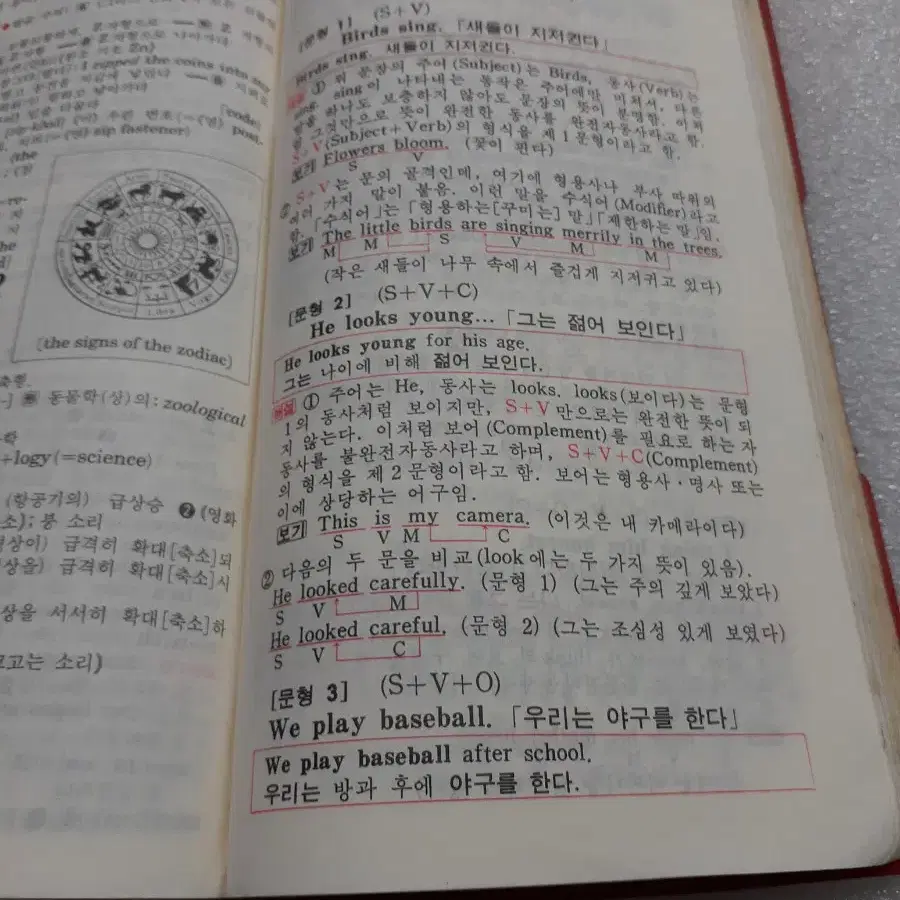 I zipped the coins into my
[code]
post-
sip fastener)
(the
[the signs of the zodiac]
동물학(상)의: zoological
+logy(=science)
(항공기의) 급상승 ❷ (영화
소); 붕 소리
급격히 확대[축소]되
급격히 확대[축소]시
상을 서서히 확대[축소]하
고는 소리)
[문형 1] (S+V)
Birds sing. 「새들이 지저귄다」
Birds sing. 새들이 지저귄다.
해설 ① 위 문장의 주어(Subject)는 Birds, 동사(Verb)는
sing. sing이 나타내는 동작은 주어에만 미쳐서, 다른
말을 하나도 보충하지 않아도 문장의 뜻이 분명함. 이처
럼 그것만으로 뜻이 완전한 동사를 완전자동사라고 함.
S+V(Subject+Verb)의 형식을 제1문형이라고 함.
보기 Flowers bloom. (꽃이 핀다)
S V
② S+V는 문의 골격인데, 여기에 형용사나 부사 따위의
여러 가지 말이 붙음. 이런 말을 수식어(Modifier)라고
함. 「수식어」는 「형용하는[꾸미는] 말」「제한하는 말」임.
보기 The little birds are singing merrily in the trees.
M M S V M M
(작은 새들이 나무 속에서 즐겁게 지저귀고 있다)
[문형 2] (S+V+C)
He looks young… 「그는 젊어 보인다」
He looks young for his age.
그는 나이에 비해 젊어 보인다.
해설 ① 주어는 He, 동사는 looks. looks(보이다)는 문형
1의 동사처럼 보이지만, S+V만으로는 완전한 뜻이 되
지 않는다. 이처럼 보어(Complement)를 필요로 하는 자
동사를 불완전자동사라고 하며, S+V+C(Complement)
의 형식을 제2문형이라고 함. 보어는 형용사·명사 또는
이에 상당하는 어구임.
보기 This is my camera. (이것은 내 카메라이다)
S V M C
② 다음의 두 문을 비교(look에는 두 가지 뜻이 있음).
He looked carefully. (문형 1) (그는 주의 깊게 보았다)
S V M
He looked careful. (문형 2) (그는 조심성 있게 보였다)
S V C
[문형 3] (S+V+O)
We play baseball. 「우리는 야구를 한다」
We play baseball after school.
우리는 방과 후에 야구를 한다.